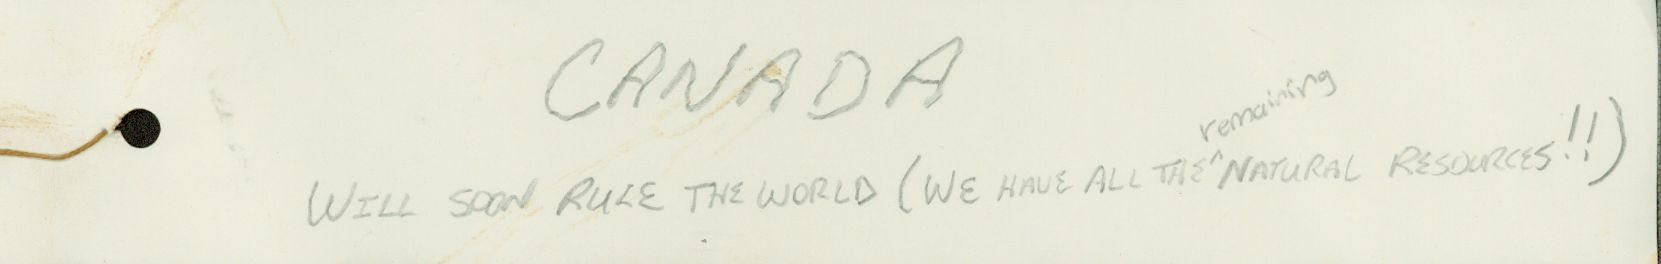 CANADA
WILL SOON RULE THE WORLD (WE HAVE ALL THE ^remaining NATURAL RESOURCES!!)